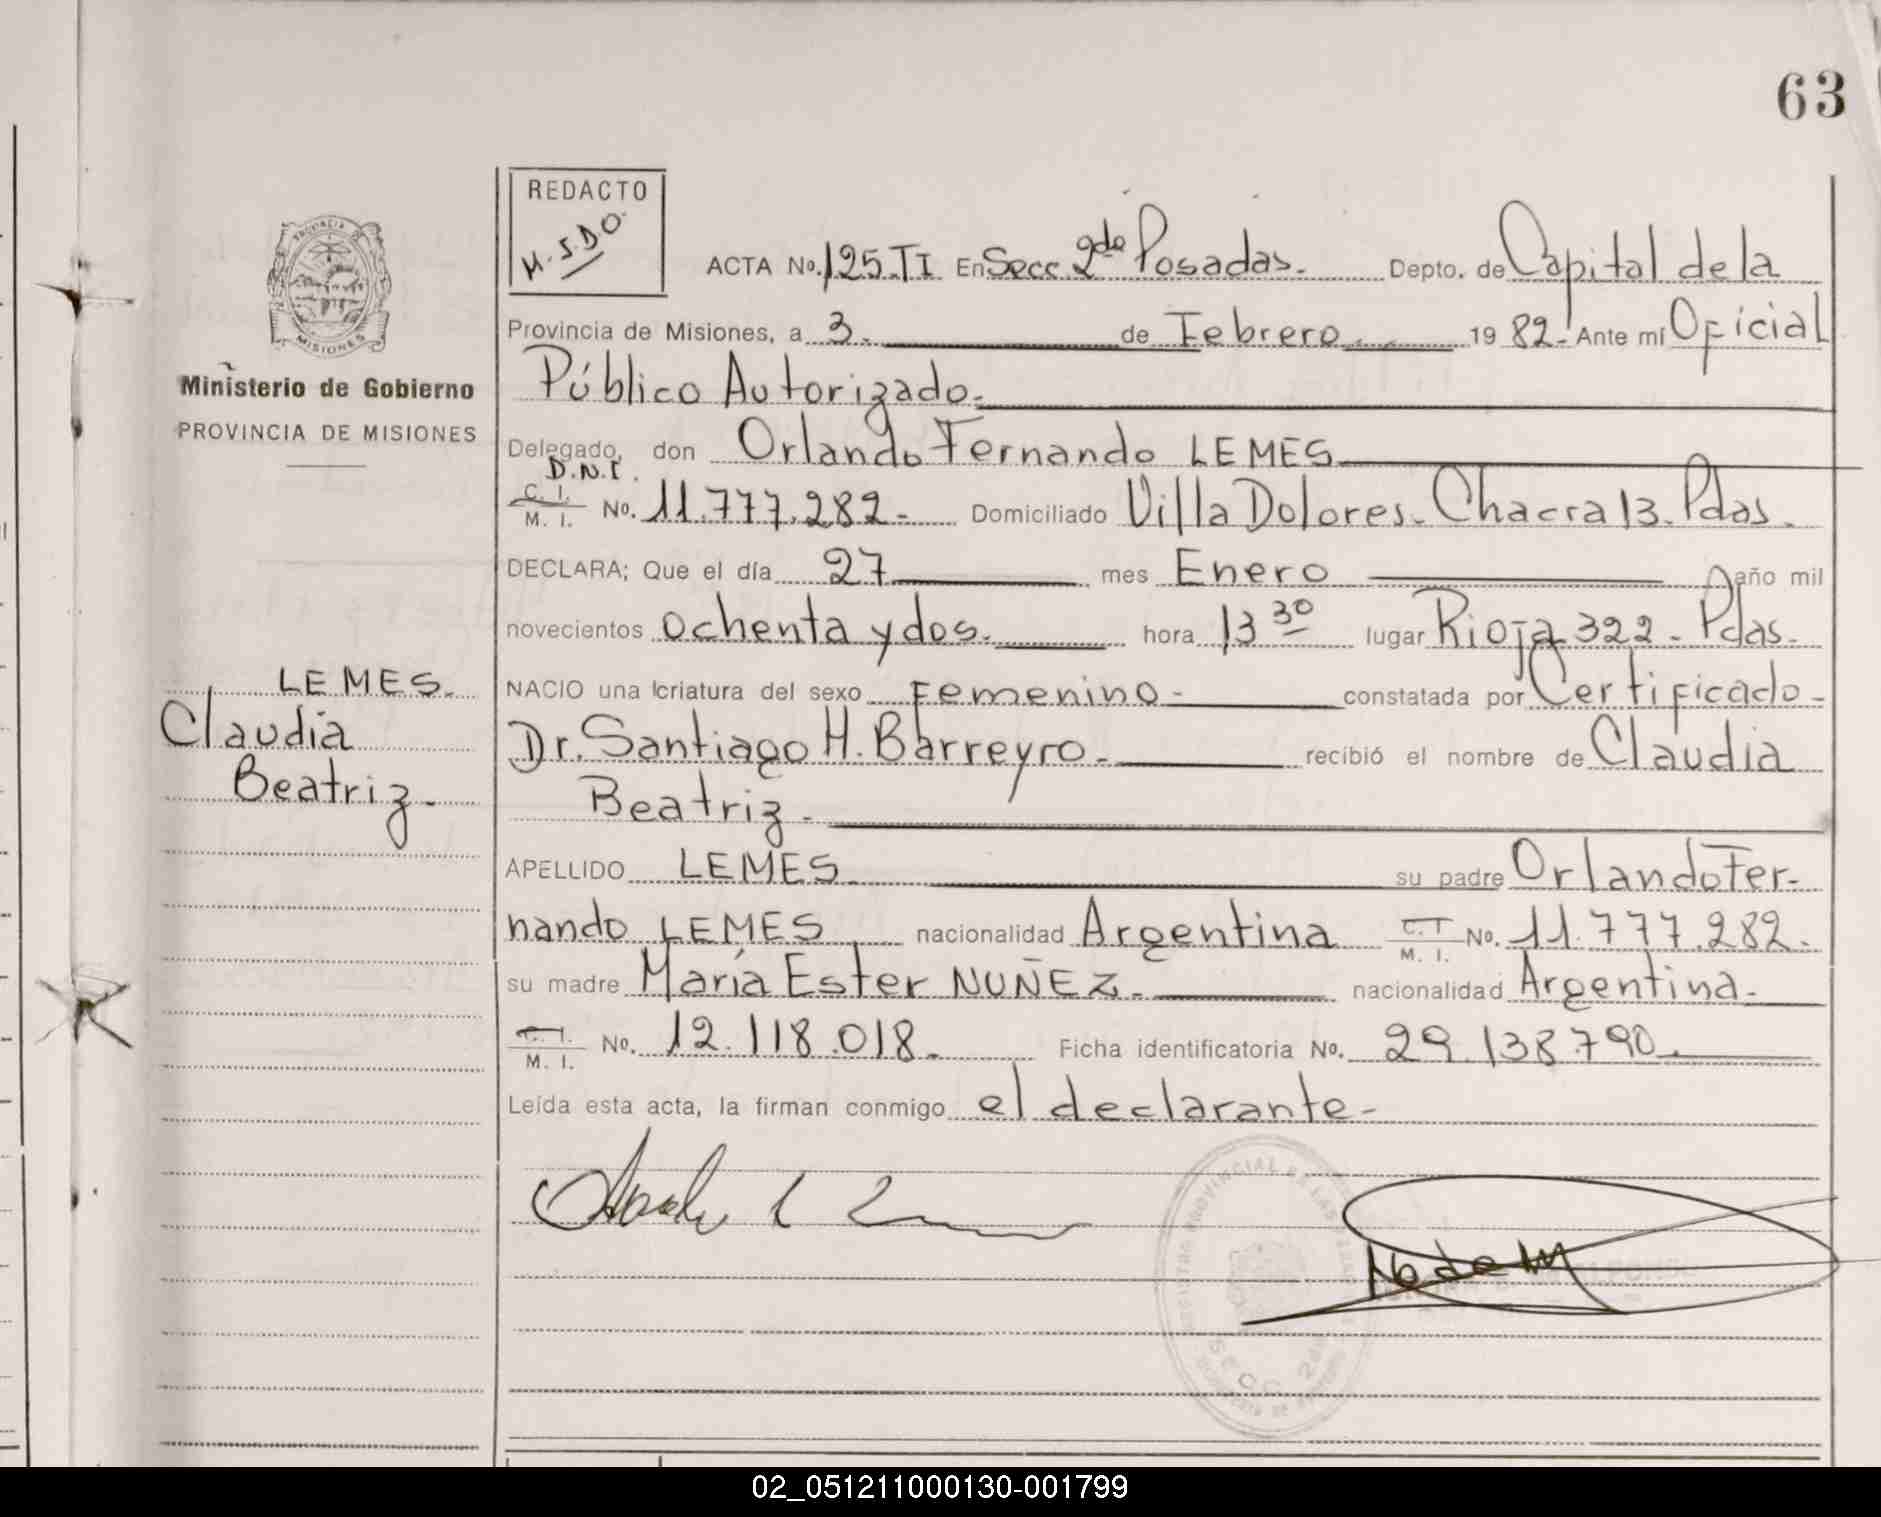 63
REDACTO
M.S.D.O.
ACTA No. 125. TI En Secc 2da Posadas. Depto. de Capital de la
Provincia de Misiones, a 3. de Febrero 1982. Ante mí Oficial
Público Autorizado.
Delegado, don Orlando Fernando LEMES
D.N.I.
C. I.
M. I. No. 11.777.282 - Domiciliado Villa Dolores. Chacra 13. Pdas.
DECLARA; Que el día 27 mes Enero año mil
novecientos ochenta y dos. hora 13 30 lugar Rioja 322 - Pdas.
NACIO una criatura del sexo Femenino - constatada por Certificado -
Dr. Santiago H. Barreyro - recibió el nombre de Claudia
Beatriz -
APELLIDO LEMES su padre Orlando Fer-
nando LEMES nacionalidad Argentina C. I. M. I. No. 11.777.282.
su madre María Ester NUÑEZ. nacionalidad Argentina.
C. I.
M. I. No. 12.118.018. Ficha identificatoria No. 29.138.790
Leída esta acta, la firman conmigo el declarante -
PROVINCIA
MISIONES
Ministerio de Gobierno
PROVINCIA DE MISIONES
LEMES.
Claudia
Beatriz -
SECC. 2da
02_051211000130-001799